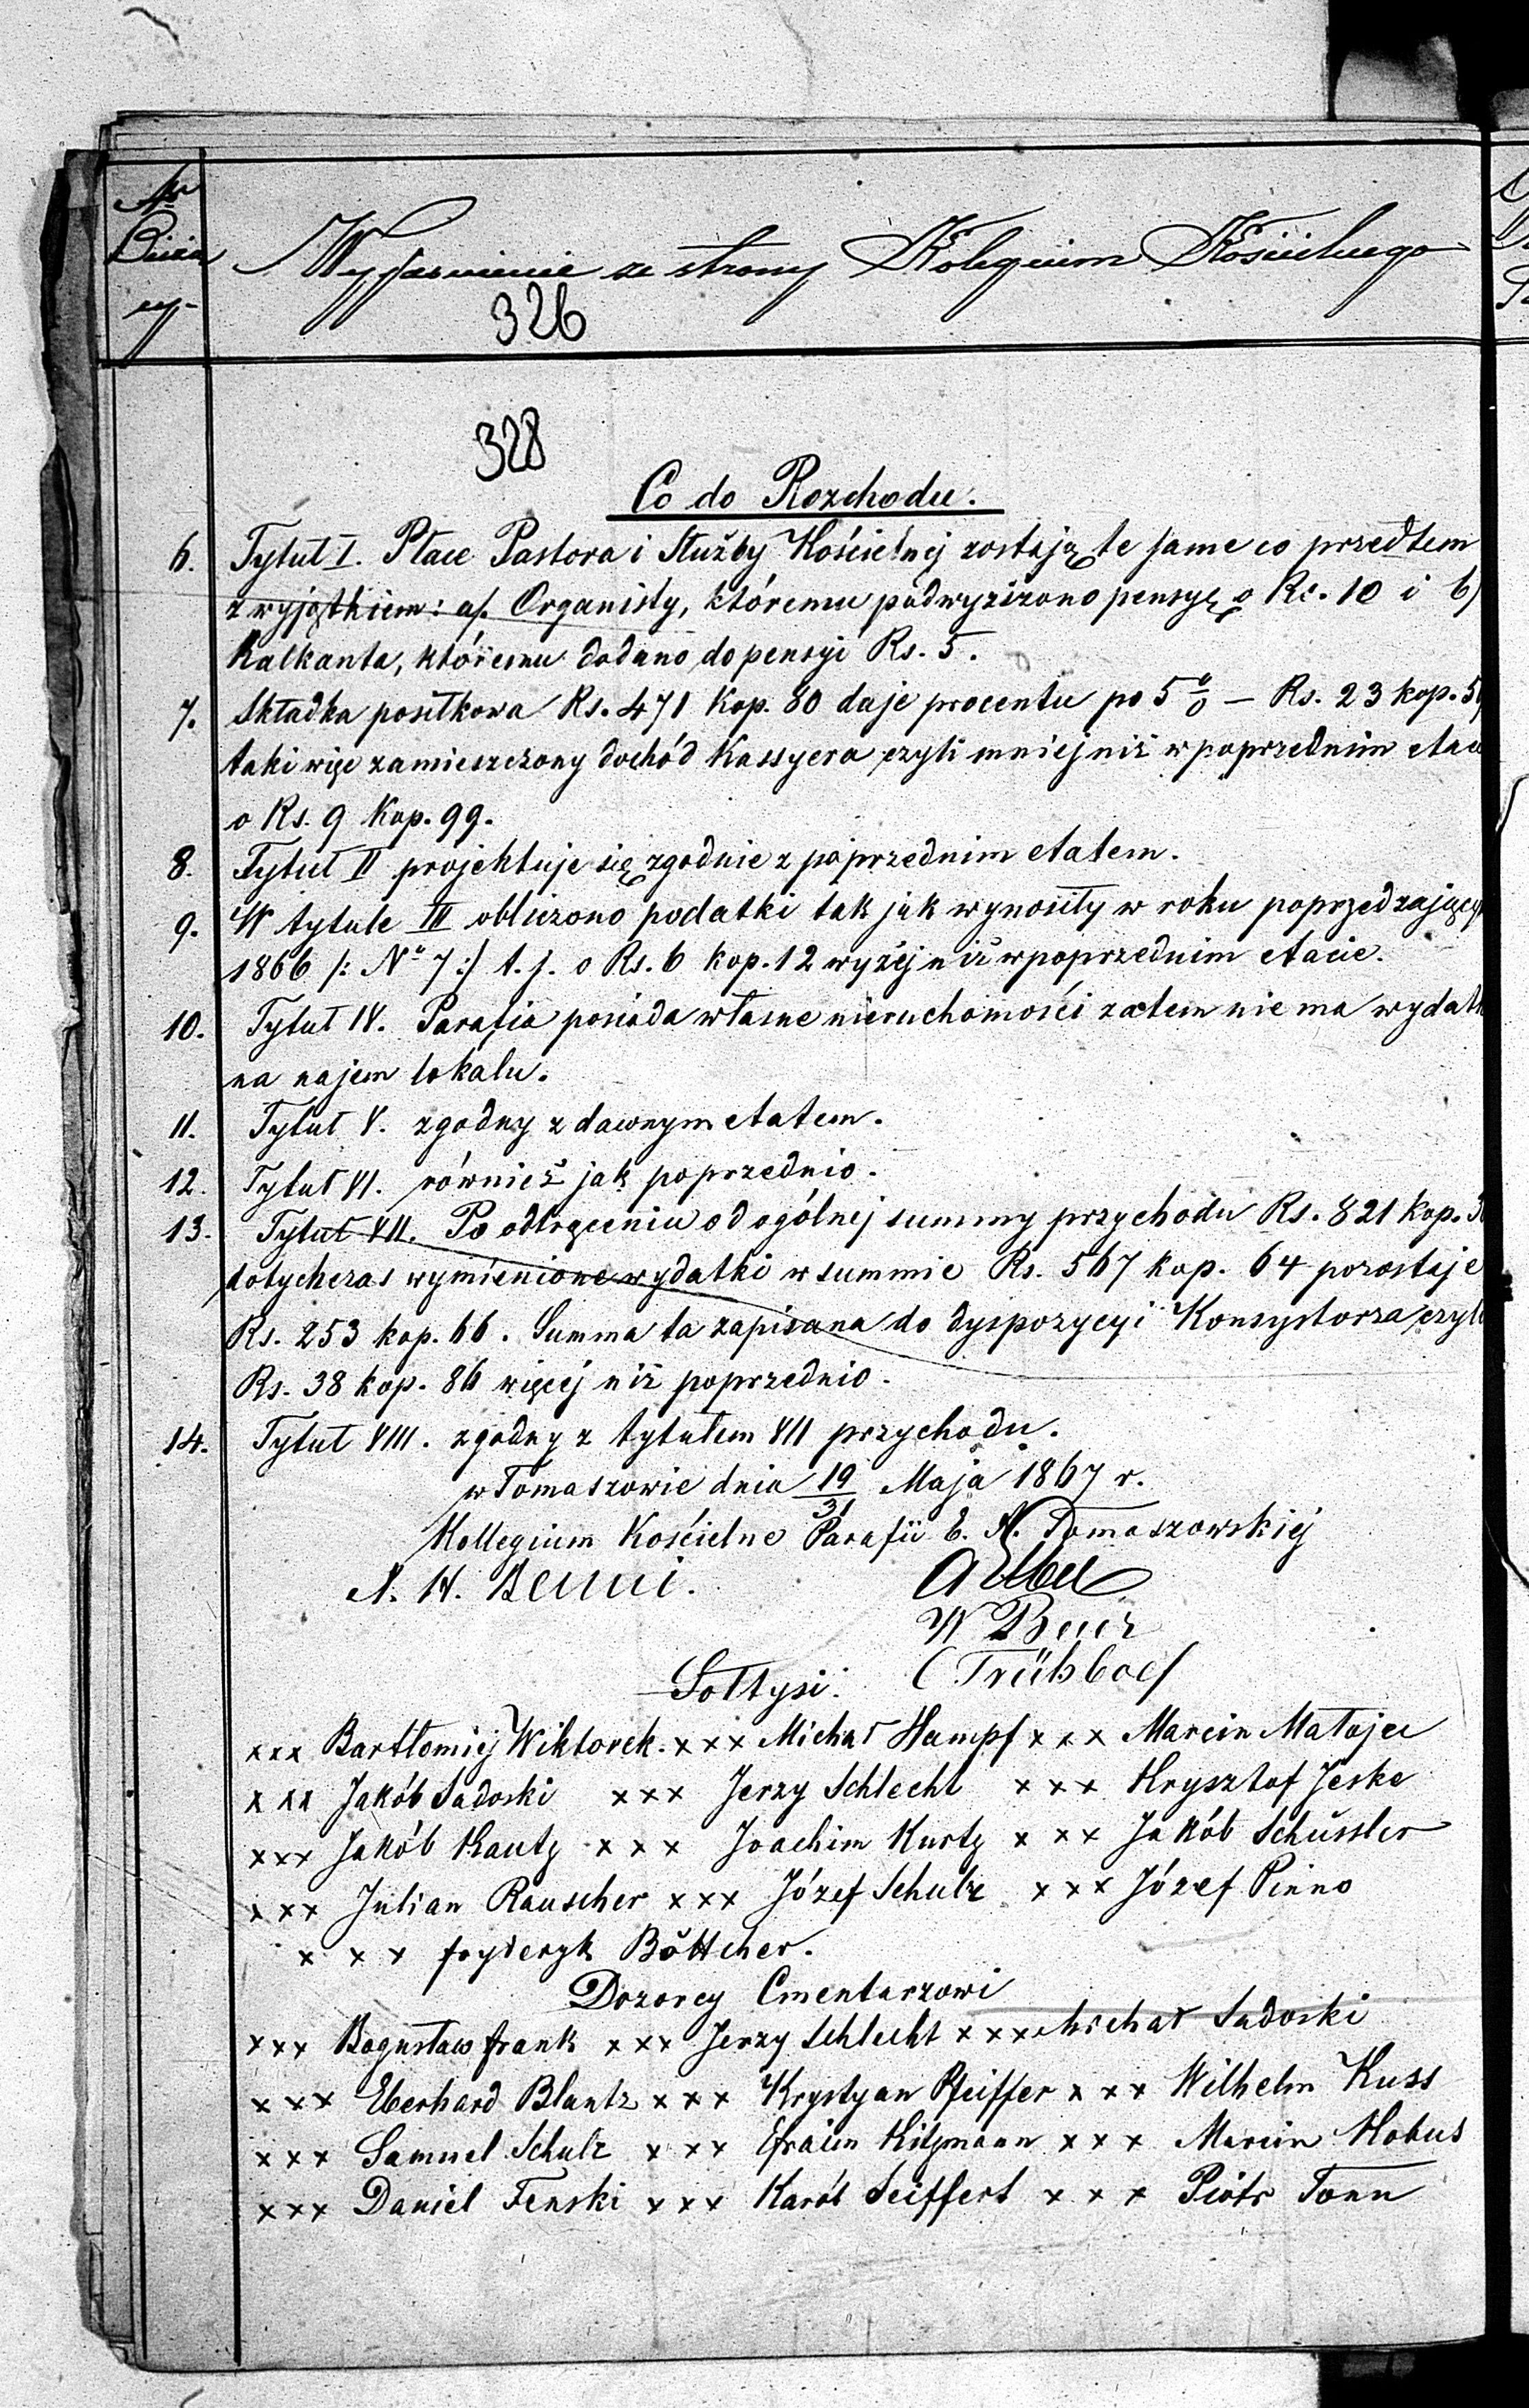 Nr
Wyjasnienie ze strony Kolegium Kościelnego
326
328
Co do Rozchodu.
6. Tytuł I. Płace Pastora i Służby Kościelnej zostają te same co przedtem
z wyjątkiem: a/. Organisty, któremu podwyższono pensyę o Rs. 10 i b)
Kalkanta, któremu dodano do pensyi Rs. 5.
7. Składka posiłkowa Rs. 471 Kop. 80 daje procentu po 5 % — Rs. 23 kop. 59
taki więc zamieszczony dochód Kassyera czyli mniej niż w poprzednim etacie
o Rs. 9 Kop. 99.
8. Tytuł II projektuje się zgodnie z poprzednim etatem.
9. W tytule III obliczono podatki tak jak wynosiły w roku poprzedzający
1866 /: No 7 :/ t. j. o Rs. 6 kop. 12 wyżej niż w poprzednim etacie.
10. Tytuł IV. Parafia posiada własne nieruchomości zatem nie ma wydatk
na najem lokalu.
11. Tytuł V. zgodny z dawnym etatem.
12. Tytuł VI. również jak poprzednio.
13. Tytuł VII. Po odtrąceniu od ogólnej summy przychodu Rs. 821 kop. 30
dotychczas wymienione wydatki w summie Rs. 567 kop. 64 pozostaje
Rs. 253 kop. 66. Summa ta zapisana do dyspozycyi Konsystorza czyli
Rs. 38 kop. 86 więcej niż poprzednio.
14. Tytuł VIII. zgodny z tytułem VII przychodu.
w Tomaszowie dnia 19/31 Maja 1867 r.
Kollegium Kościelne Parafii E. A. Tomaszowskiej
A. H. Benni.
W
Sołtysi:
xxx Bartłomiej Wiktorek. xxx Michał Hampf xxx Marcin Matajec
xxx Jakób Sadoski xxx Jerzy Schlecht xxx Krysztof Jeske
xxx Jakób Kautz xxx Joachim Kurtz xxx Jakób Schüssler
xxx Julian Rauscher xxx Józef Schulz xxx Józef Pinno
xxx fryderyk Böttcher.
Dozorcy Cmentarzowi
xxx Bogusław frank xxx Jerzy Schlecht xxx Michał Sadoski
xxx Eberhard Blantz xxx Krystyan Pfeiffer xxx Wilhelm Kuss
xxx Samuel Schulz xxx Efraim Kitzmann xxx Marcin Hobus
xxx Daniel Fenski xxx Karól Seiffert xxx Piótr Tonn